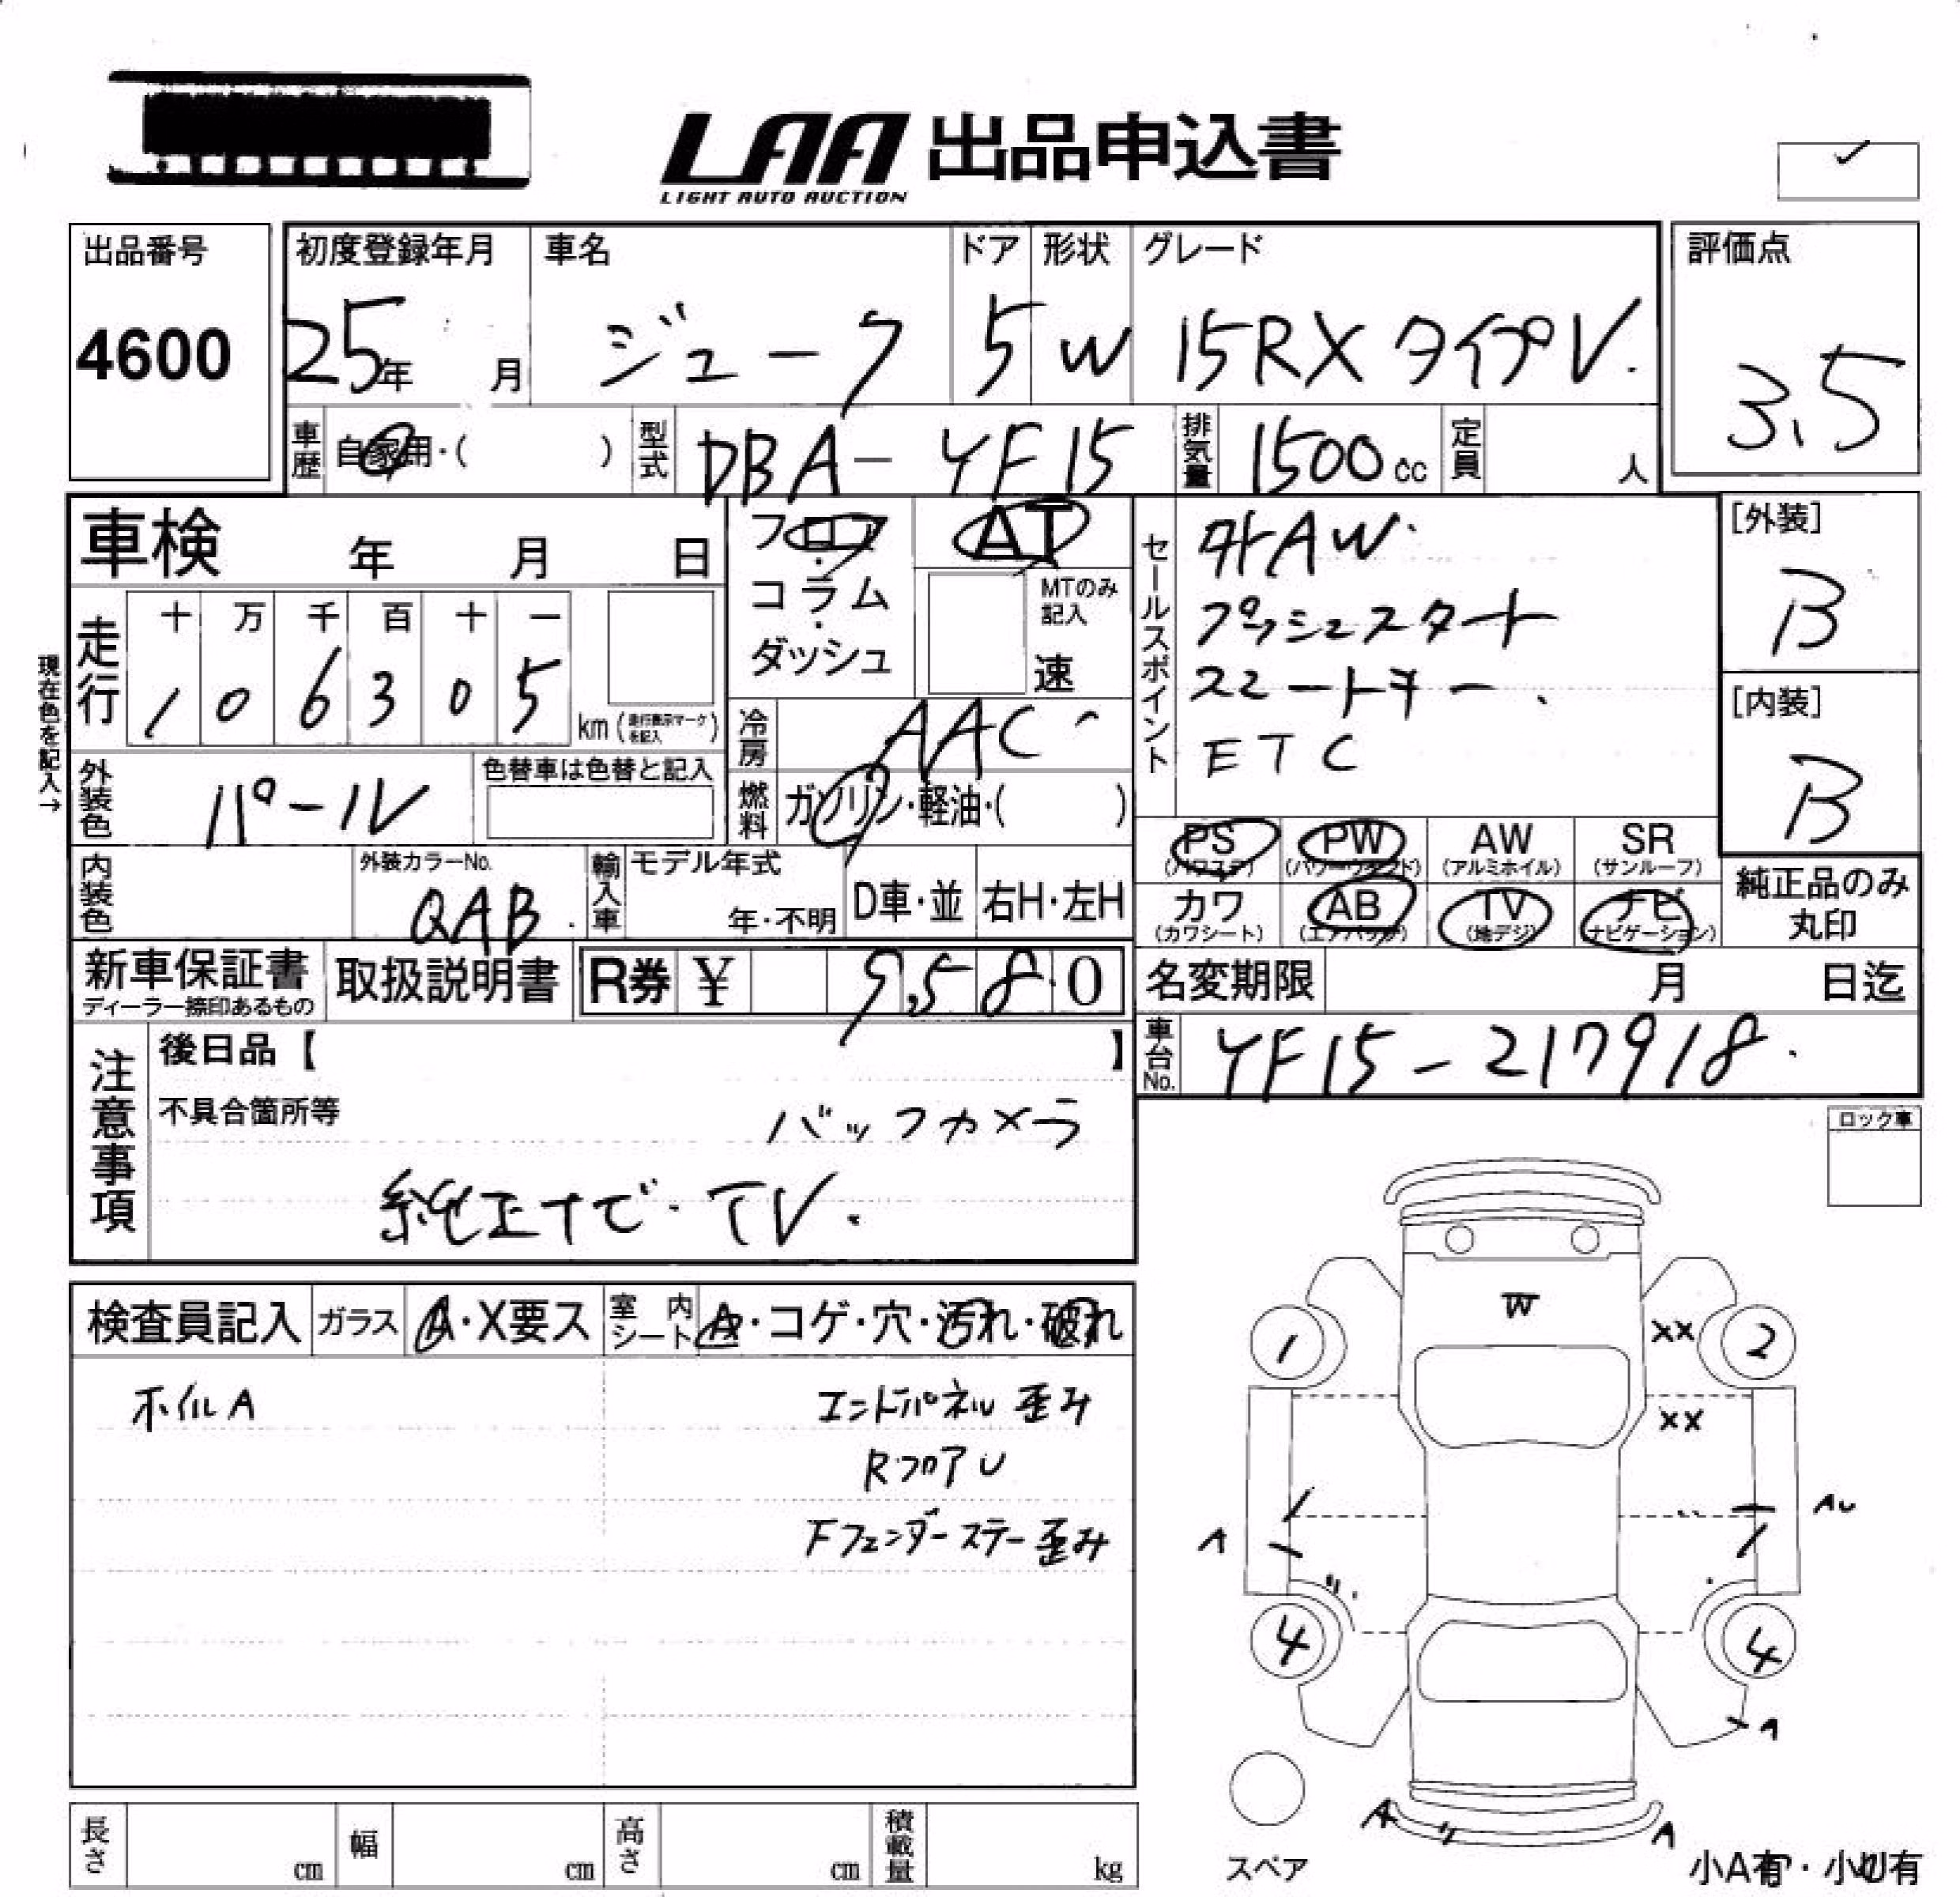 LAA 出品申込書
LIGHT AUTO AUCTION
✓
出品番号
4600
初度登録年月
25年 月
車名
ジューク
ドア
5
形状
W
グレード
15RX タイプV.
評価点
3.5
車歴
自家用・( )
型式
DBA-YF15
排気量
1500 cc
定員
人
車検 年 月 日
フロア
・
コラム
・
ダッシュ
AT
MTのみ
記入
速
セールスポイント
外AW.
プッシュスタート
スマートキー.
ETC
[外装]
B
[内装]
B
現在色を記入→
走行
十 万 千 百 十 一
1 0 6 3 0 5
km (走行表示マークを記入)
冷房
AAC
外装色
パール
色替車は色替と記入
燃料
ガソリン・軽油・( )
PS
(パワステ)
PW
(パワーウインド)
AW
(アルミホイル)
SR
(サンルーフ)
カワ
(カワシート)
AB
(エアバッグ)
TV
(地デジ)
ナビ
(ナビゲーション)
純正品のみ
丸印
内装色
外装カラーNo.
QAB
輸入車
モデル年式
年・不明
D車・並
右H・左H
新車保証書
ディーラー捺印あるもの
取扱説明書
R券 ¥ 9,580
名変期限 月 日迄
車台No.
YF15-217918.
注意事項
後日品【 】
不具合箇所等
バックカメラ
純正ナビ・TV.
ロック車
検査員記入
ガラス
A・X要ス
室内シート
A・コゲ・穴・汚れ・破れ
ホイルA
エンドパネル 歪み
RフロアU
Fフェンダーステー歪み
W
1
XX
2
XX
A
AU
4
4
A
A
A
スペア
小A有・小U有
長さ
cm
幅
cm
高さ
cm
積載量
kg